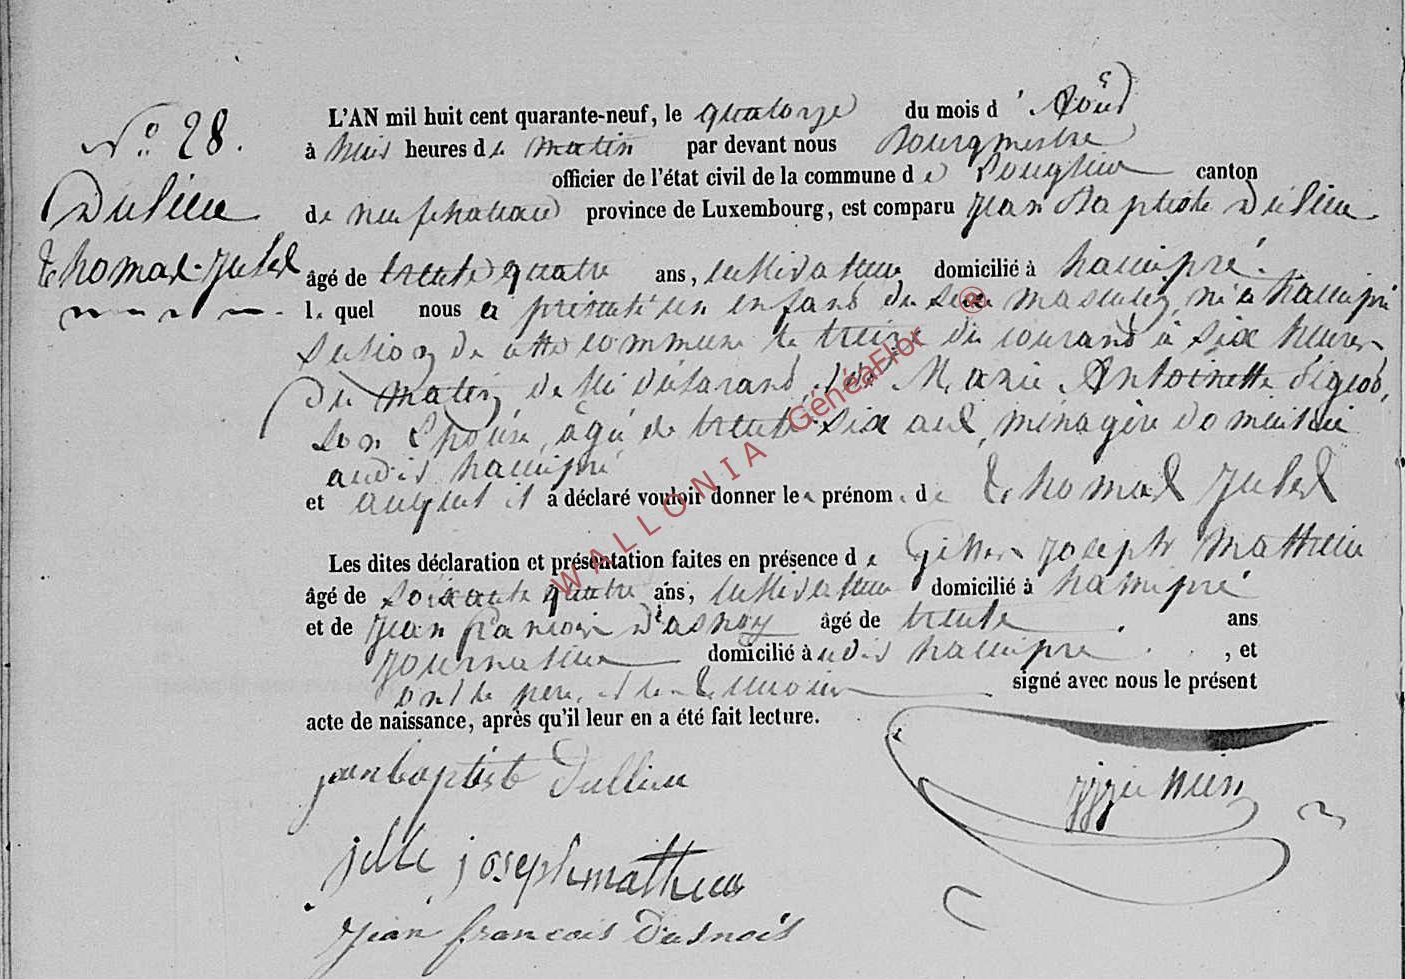 N° 28.
Dulieu
Thomas Jules
L'AN mil huit cent quarante-neuf, le quatorze du mois d' Août
à huit heures de matin par devant nous Bourgmestre
officier de l'état civil de la commune de Longlier canton
de neufchateau province de Luxembourg, est comparu Jean Baptiste Dulieu
âgé de trente quatre ans, cultivateur domicilié à hamipré.
lequel nous a présenté un enfant du sexe masculin, né à hamipré
section de cette commune le treize du courant à six heures
du matin de lui déclarant, et de Marie Antoinette
son Epouse, agée de trente six ans, ménagère domiciliée
audit hamipré
et auquel il a déclaré vouloir donner les prénom. de Thomas Jules
Les dites déclaration et présentation faites en présence de Joseph Mathieu
âgé de soixante quatre ans, cultivateur domicilié à hamipré
et de Jean françois D'asnoy âgé de trente ans
Journalier domicilié audit hamipré , et
ont le père et les témoins signé avec nous le présent
acte de naissance, après qu'il leur en a été fait lecture.
jean baptist Dullieu
joseph mathieu
jean francois Dasnois
WALLONIA GénéaFlor ®